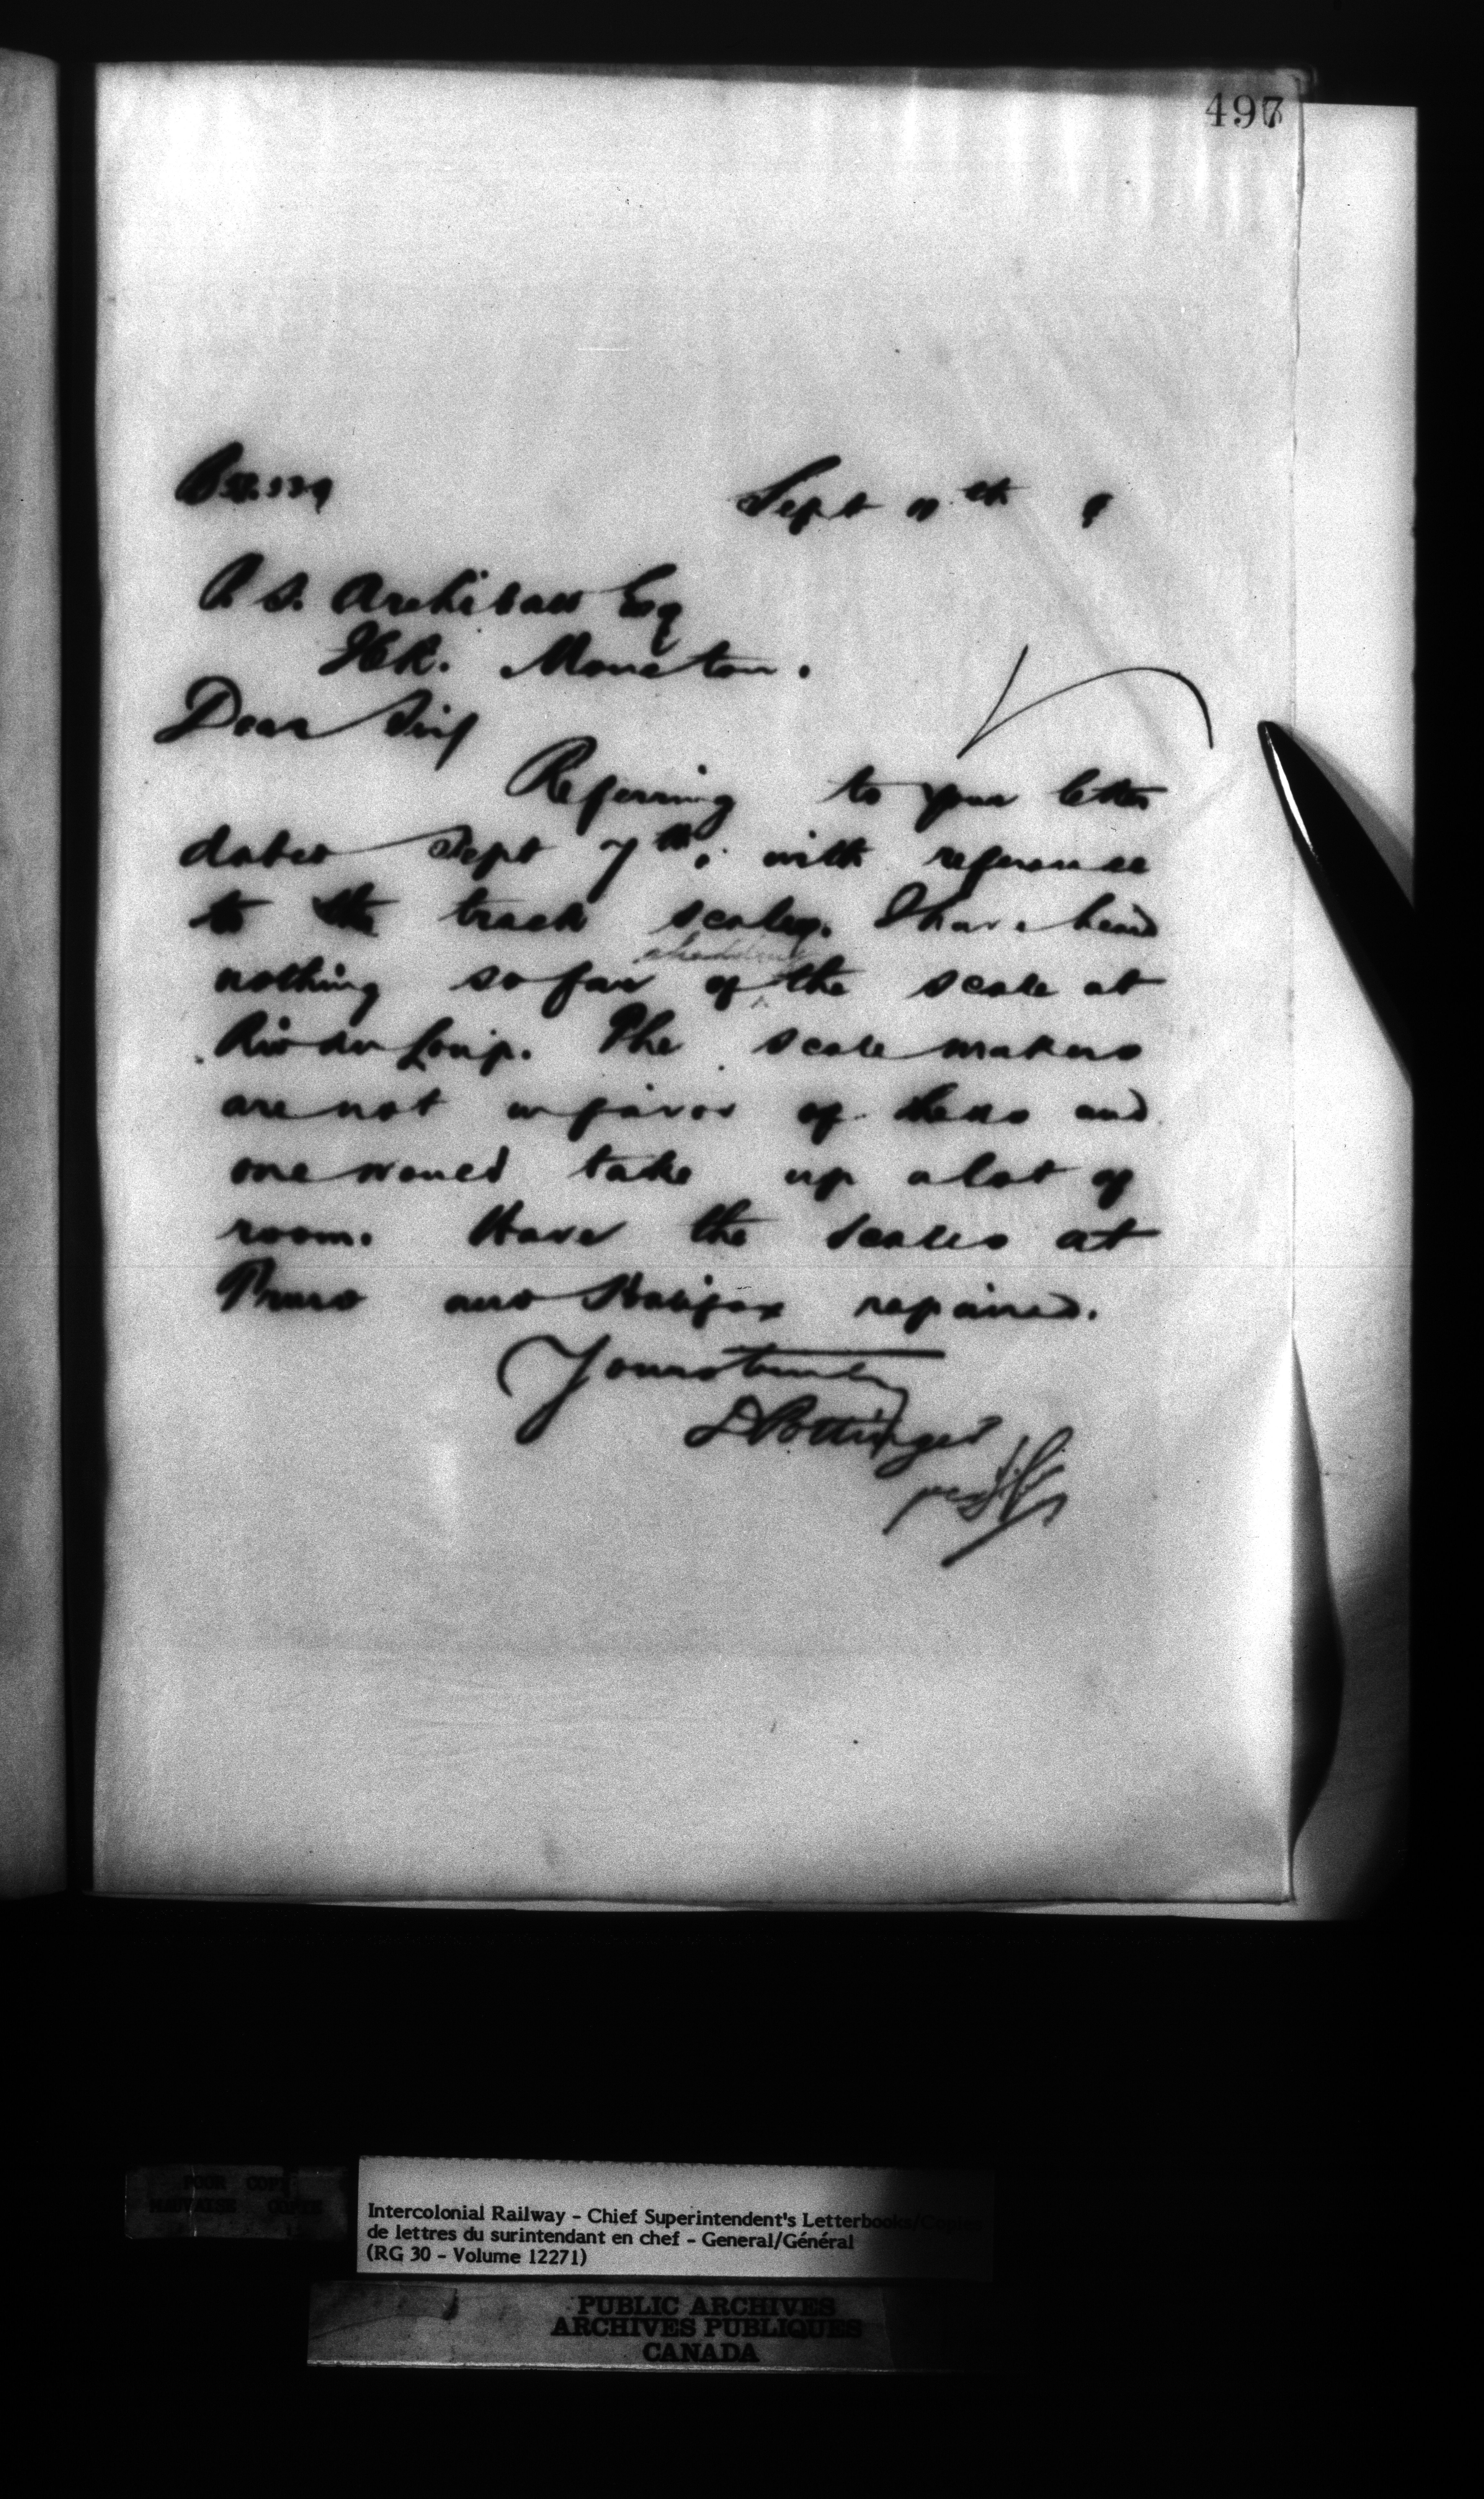 497
Sept th 9
P. S. Archibald Esq
ICR. Moncton.
Dear Sir
Referring to your letter
dated Sept 7th, with reference
to the track scales. I have heard
shedding
nothing so far of the scale at
Riv du Loup. The scale makers
are not in favor of them and
one would take up a lot of
room. Have the scales at
Truro and Halifax repaired.
Yours truly
D Pottinger
per
POOR COPY
MAUVAISE COPIE
Intercolonial Railway - Chief Superintendent's Letterbooks/Copies
de lettres du surintendant en chef - General/Général
(RG 30 - Volume 12271)
PUBLIC ARCHIVES
ARCHIVES PUBLIQUES
CANADA